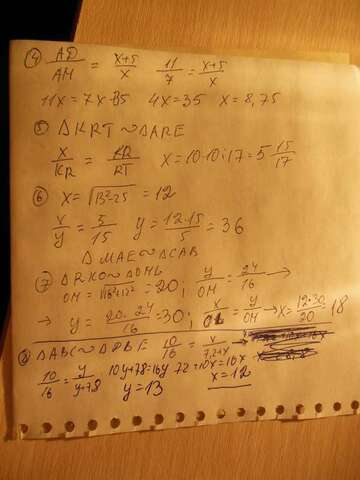 ④ AD/AM = x+5/x   11/7 = x+5/x
11x = 7x+35   4x = 35   x = 8,75
⑤ Δ KRT ~ Δ ARE
x/KR = KR/RT   x = 10·10:17 = 5 15/17
⑥ x = √13²-25 = 12
x/y = 5/15   y = 12·15/5 = 36
Δ MAE ~ Δ CAB
⑦ Δ RKO ~ Δ OML
OM = √16²+12² = 20;   y/OM = 24/16 →
→ y = 20·24/16 = 30;   x/OL = y/OM → x = 12·30/20 = 18
⑧ Δ ABC ~ Δ DBE   10/16 = x/7,2+x →
10/16 = y/y+7,8   10y+78 = 16y   72+10x = 16x
y = 13   x = 12